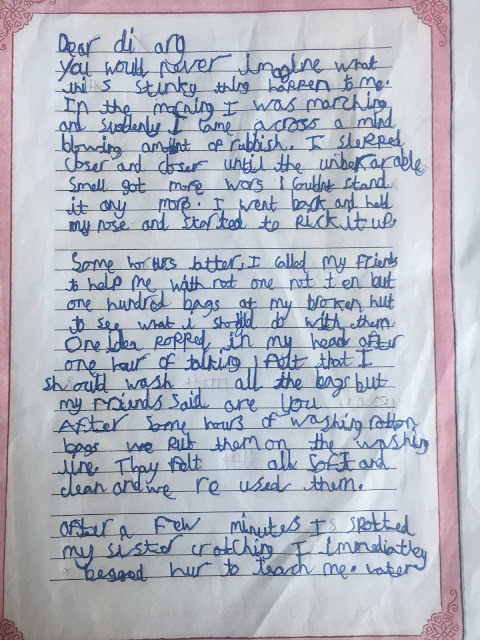 Dear di ary
you would never imagine what
this stunky thing happen to me.
In the morning I was marching
and suddenly I came across a mind
blowing amount of rubbish. I stepped
closer and closer until the unbearable
smell got more wors i couldnt stand
it any more. I went back and held
my nose and started to pick it up.
Some hours latter, I called my friends
to help me with not one not ten but
one hundred bags at my broken hut
to see what i should do with them.
One idea popped in my head after
one hour of talking I felt that I
should wash all the bags but
my friends said are you
After some hours of washing rotton
bags we put them on the washing
line. They felt all soft and
clean and we re used them.
after a few minutes I spotted
my sister crotching I immediatley
begged hur to teach me. later